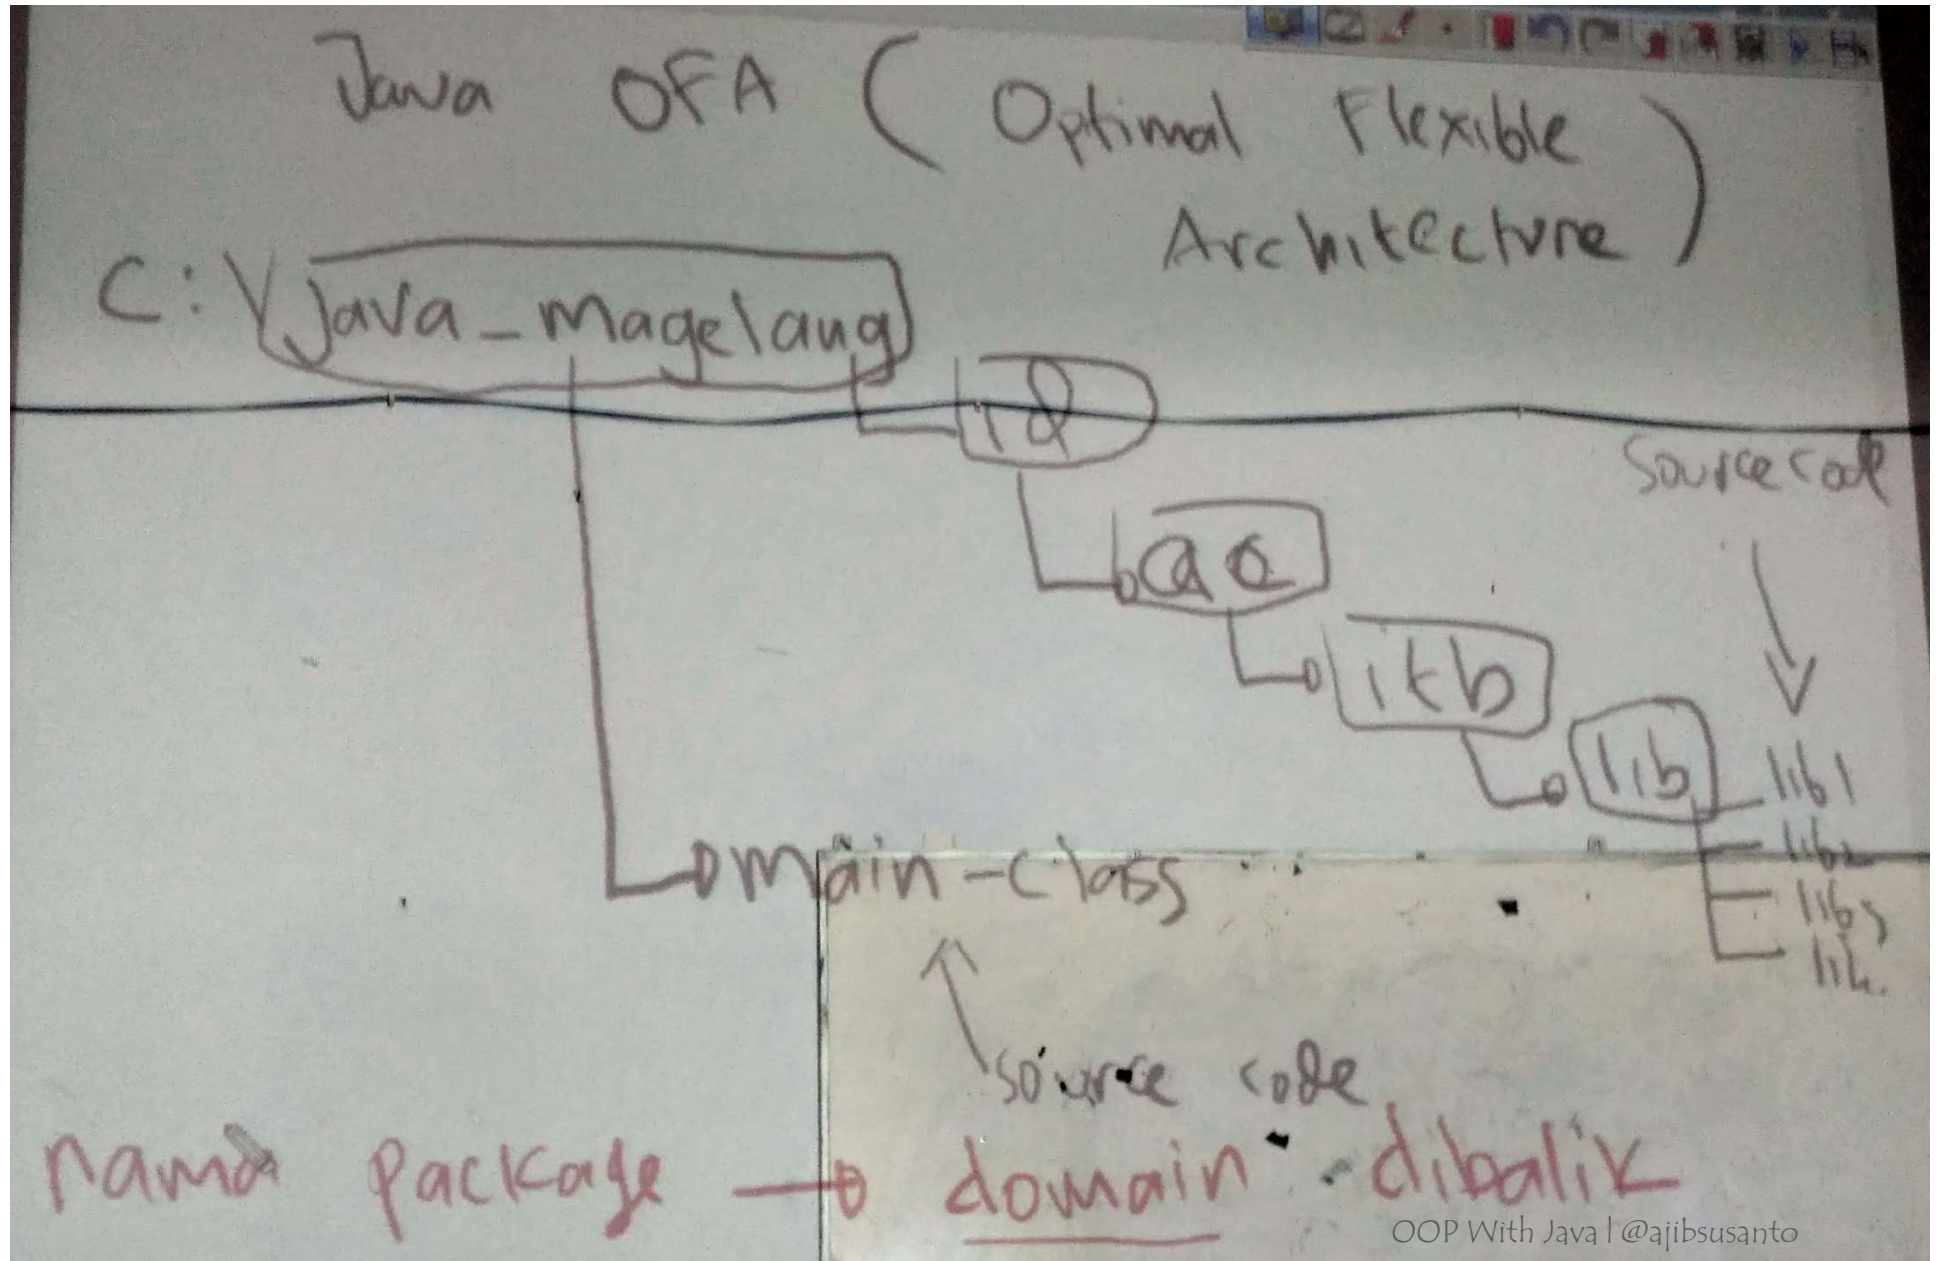 Java OFA (Optimal Flexible
Architecture)
C:\Java_magelang
id
Source code
ac
itb
lib
lib1
lib2
lib3
main-class
source code
nama package → domain dibalik
OOP With Java | @ajibsusanto